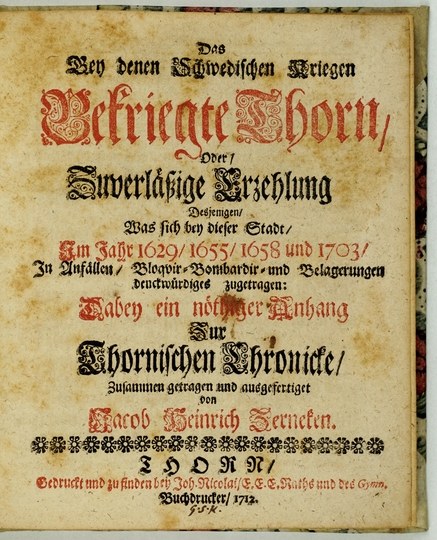 Das
Bey denen Schwedischen Kriegen
Bekriegte Thorn/
Oder/
Zuverläßige Erzehlung
Desjenigen/
Was sich bey dieser Stadt/
Im Jahr 1629/ 1655/ 1658 und 1703/
In Anfällen/ Bloqvir-Bombardir-und Belagerungen
denckwürdiges zugetragen:
Dabey ein nöthiger Anhang
Zur
Thornischen Chronicke/
Zusammen getragen und ausgefertiget
von
Jacob Heinrich Zerneken.
THORN/
Gedruckt und zu finden bey Joh. Nicolai/ E. E. E. Raths und des Gymn.
Buchdrucker/ 1712.